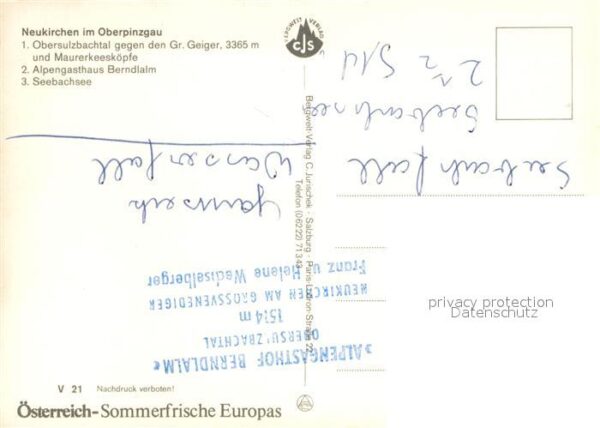 Neukirchen im Oberpinzgau
1. Obersulzbachtal gegen den Gr. Geiger, 3365 m
und Maurerkeesköpfe
2. Alpengasthaus Berndlalm
3. Seebachsee
BERGWELT VERLAG
CJS
Bergwelt-Verlag C. Jurischek - Salzburg - Paris-Lodron-Straße 22
Telefon (06222) 71343
Seebachfall
Seebachsee
2 1/2 Std
Wasserfall
»ALPENGASTHOF BERNDLALM«
OBERSULZBACHTAL
1514 m
NEUKIRCHEN AM GROSSVENEDIGER
Franz u. Helene Wechselberger
privacy protection
Datenschutz
V 21 Nachdruck verboten!
Österreich-Sommerfrische Europas